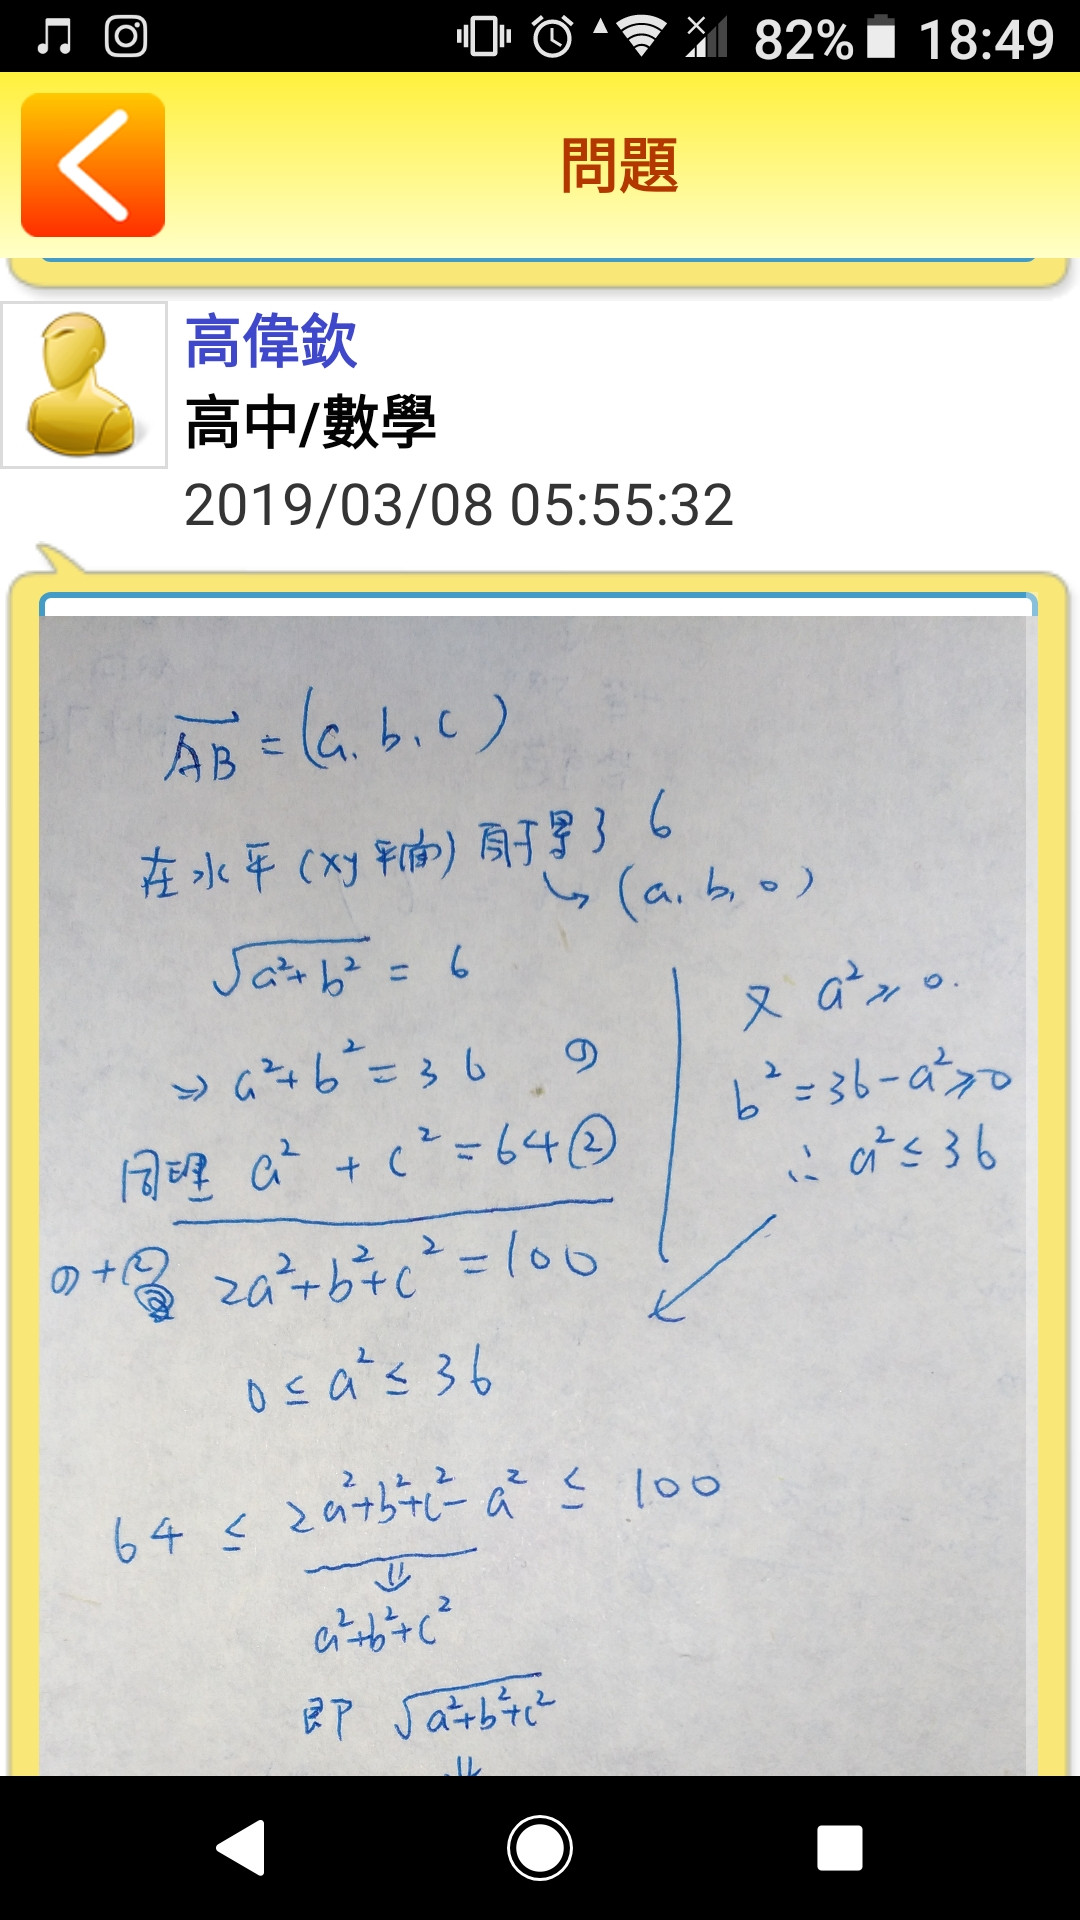 82% 18:49
問題
高偉欽
高中/數學
2019/03/08 05:55:32
AB = (a, b, c)
在水平(xy平面)射影了 6
→ (a, b, 0)
√a²+b² = 6
⇒ a²+b² = 36 ①
同理 a² + c² = 64 ②
①+② 2a²+b²+c² = 100
又 a² ≥ 0.
b² = 36-a² ≥ 0
∴ a² ≤ 36
0 ≤ a² ≤ 36
64 ≤ 2a²+b²+c²-a² ≤ 100
⇓
a²+b²+c²
即 √a²+b²+c²